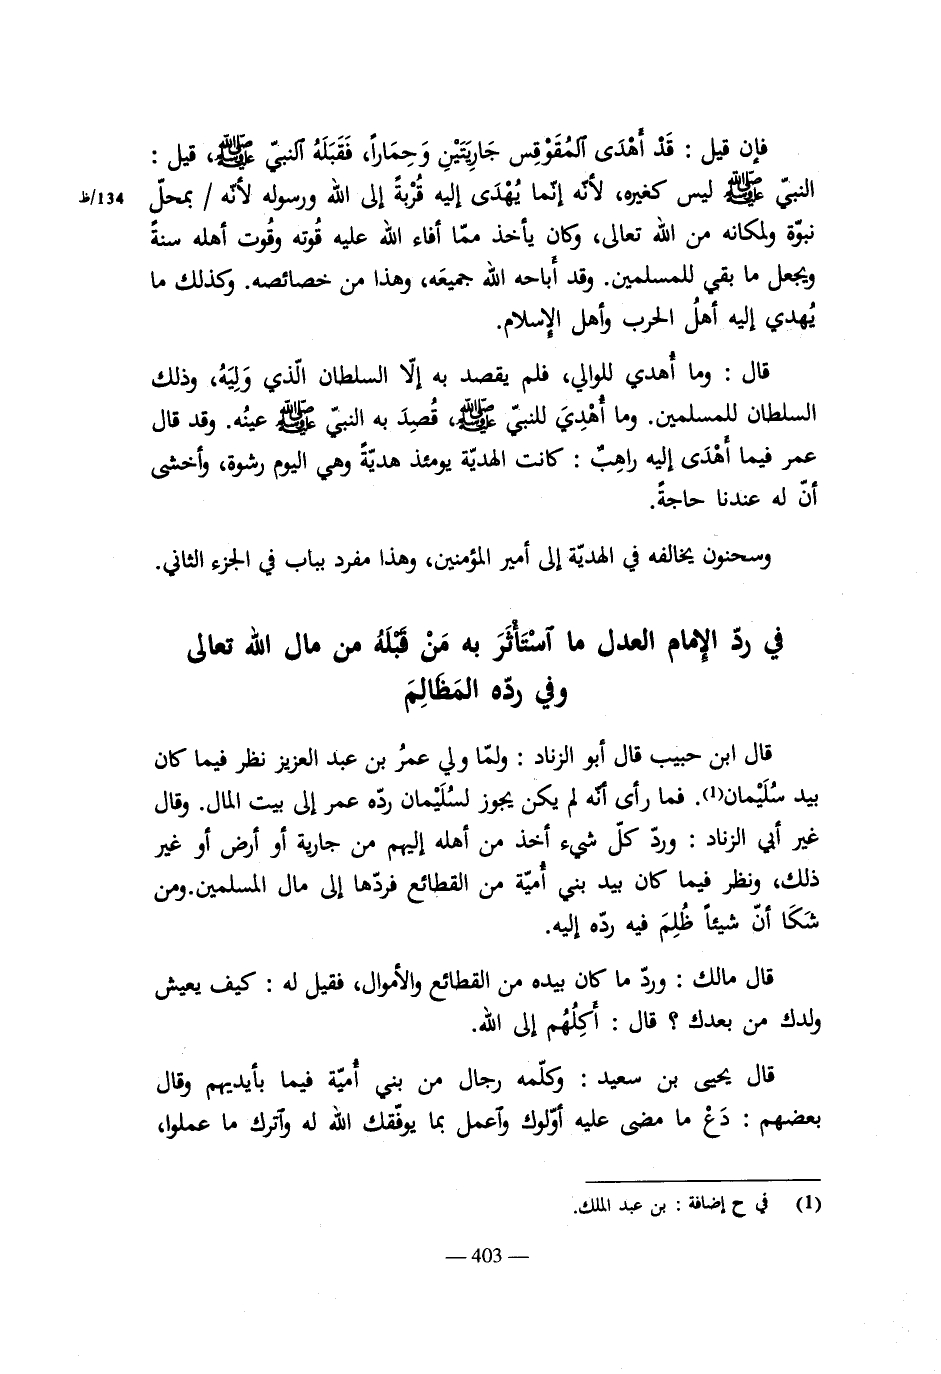 فإن قيل : قَدْ أَهْدَى ٱلمُقَوْقِس جَارِيَتَيْنِ وَحِمَاراً، فَقَبَلَهُ ٱلنبيّ ﷺ، قيل :
النبيّ ﷺ ليس كغيره، لأنّه إنّما يُهْدَى إليه قُرْبةً إلى الله ورسوله لأنّه / بمحلّ 134/ظ
نبوّة ولمكانه من الله تعالى، وكان يأخذ ممّا أفاء الله عليه قُوته وقُوت أهله سنةً
ويجعل ما بقي للمسلمين. وقد أباحه الله جميعَه، وهذا من خصائصه. وكذلك ما
يُهدي إليه أهلُ الحرب وأهل الإسلام.
قال : وما أُهدي للوالي، فلم يقصد به إلّا السلطان الّذي وَلِيَهُ، وذلك
السلطان للمسلمين. وما أُهْدِيَ للنبيّ ﷺ، قُصِدَ به النبيّ ﷺ عينُه. وقد قال
عمر فيما أَهْدَى إليه راهِبٌ : كانت الهديّة يومئذ هديّةً وهي اليوم رشوة، وأخشى
أنّ له عندنا حاجةً.
وسحنون يخالفه في الهديّة إلى أمير المؤمنين، وهذا مفرد بباب في الجزء الثاني.
في ردّ الإمام العدل ما ٱسْتَأْثَرَ به مَنْ قَبْلَهُ من مال الله تعالى
وفي ردّه المَظَالِمَ
قال ابن حبيب قال أبو الزناد : ولمّا ولي عمرُ بن عبد العزيز نظر فيما كان
بيد سُلَيْمان(1). فما رأى أنّه لم يكن يجوز لسُلَيْمان ردّه عمر إلى بيت المال. وقال
غير أبي الزناد : وردّ كلّ شيء أخذ من أهله إليهم من جارية أو أرض أو غير
ذلك، ونظر فيما كان بيد بني أُميّة من القطائع فردّها إلى مال المسلمين.ومن
شَكَا أنّ شيئاً ظُلِمَ فيه ردّه إليه.
قال مالك : وردّ ما كان بيده من القطائع والأموال، فقيل له : كيف يعيش
ولدك من بعدك ؟ قال : أَكِلُهُم إلى الله.
قال يحيى بن سعيد : وكلّمه رجال من بني أُميّة فيما بأيديهم وقال
بعضهم : دَعْ ما مضى عليه أوّلوك وٱعمل بما يوفّقك الله له وٱترك ما عملوا،
(1) في ح إضافة : بن عبد الملك.
— 403 —